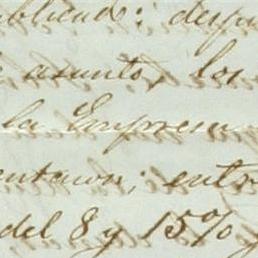 ublicad: despu
asunto, los
la Empresa
entaron; entr
del 8 y 15%